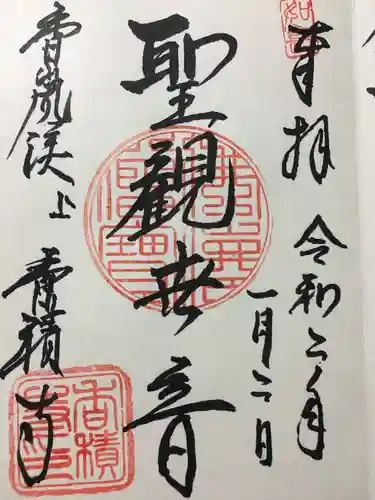 奉拝
令和二年
一月二日
聖觀世音
香嵐渓上
香積寺
香積寺印